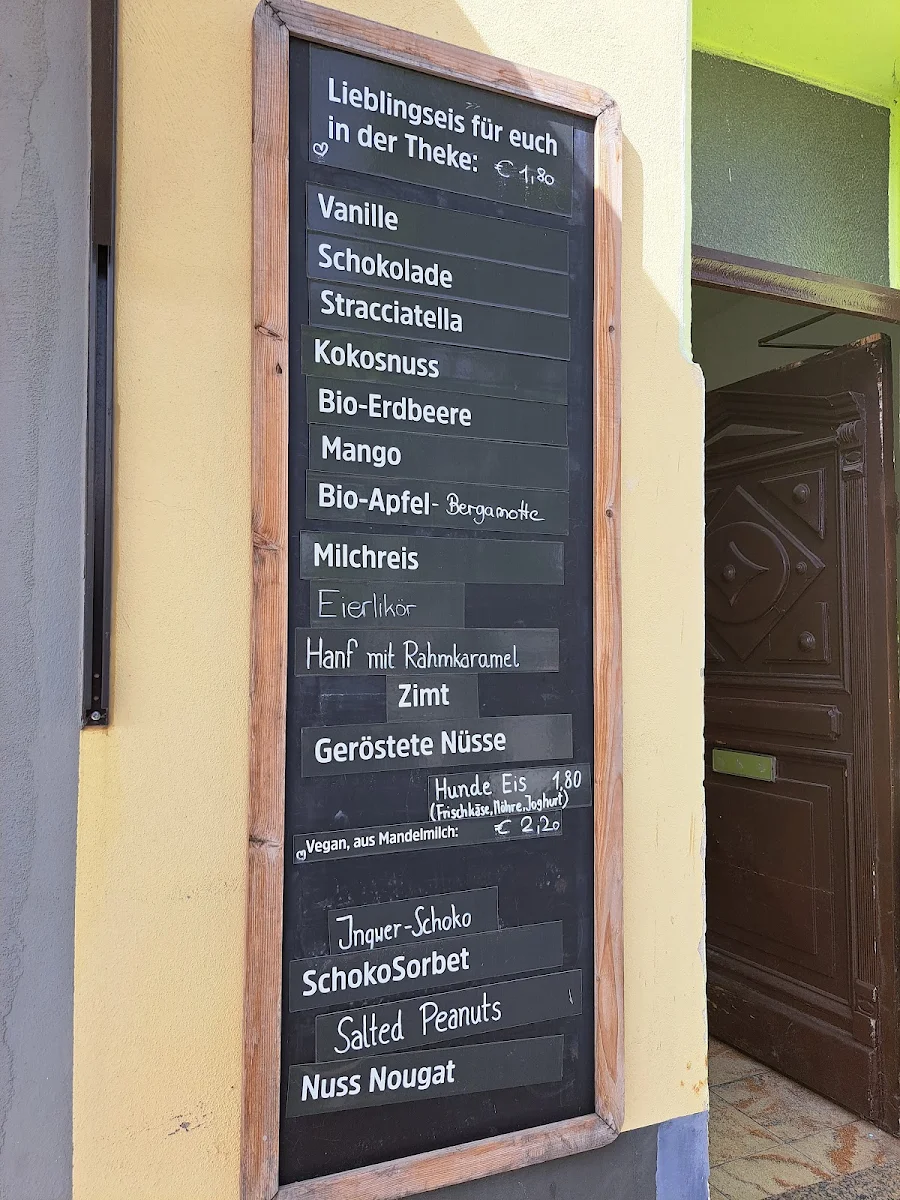 Lieblingseis für euch
in der Theke: € 1,80
Vanille
Schokolade
Stracciatella
Kokosnuss
Bio-Erdbeere
Mango
Bio-Apfel- Bergamotte
Milchreis
Eierlikör
Hanf mit Rahmkaramel
Zimt
Geröstete Nüsse
Hunde Eis 1,80
(Frischkäse, Möhre, Joghurt)
Vegan, aus Mandelmilch: € 2,20
Ingwer-Schoko
SchokoSorbet
Salted Peanuts
Nuss Nougat